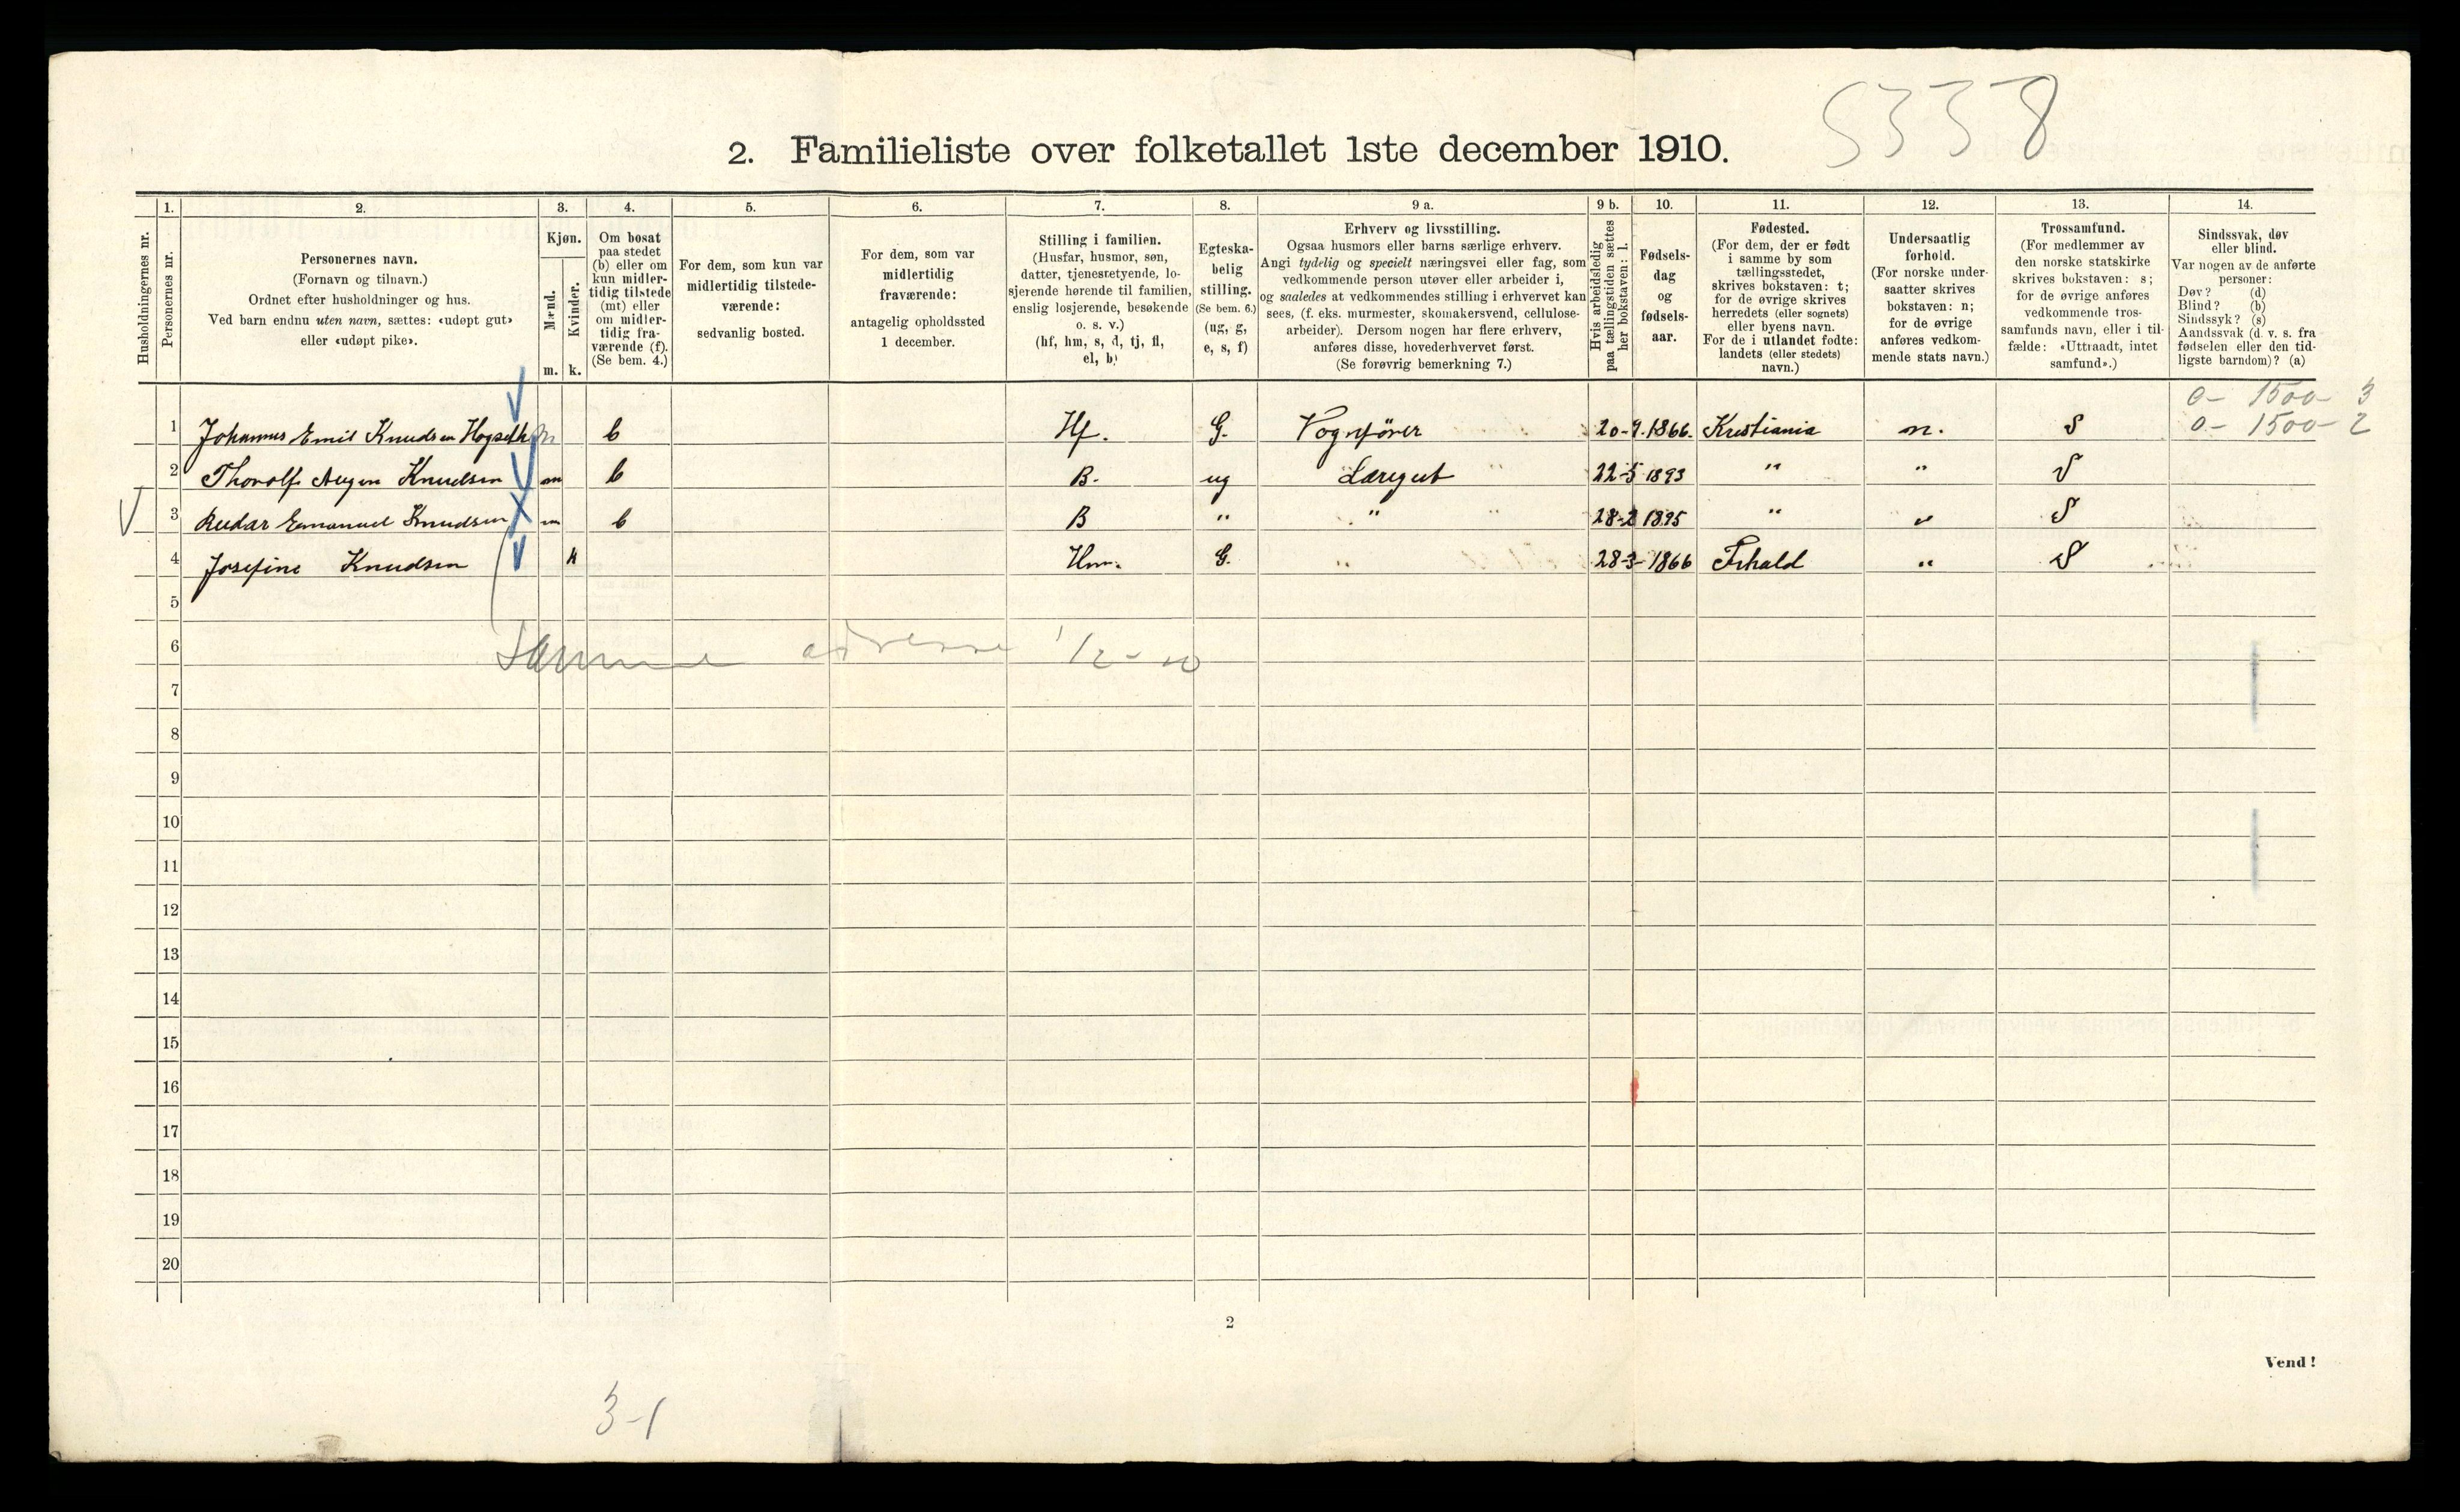 5338
2. Familieliste over folketallet 1ste december 1910.
1. 2. 3. 4. 5. 6. 7. 8. 9 a. 9 b. 10. 11. 12. 13. 14.
Husholdningernes nr.
Personernes nr.
Personernes navn.
(Fornavn og tilnavn.)
Ordnet efter husholdninger og hus.
Ved barn endnu uten navn, sættes: «udøpt gut»
eller «udøpt pike».
Kjøn.
Mænd.
Kvinder.
m. k.
Om bosat
paa stedet
(b) eller om
kun midler-
tidig tilstede
(mt) eller
om midler-
tidig fra-
værende (f).
(Se bem. 4.)
For dem, som kun var
midlertidig tilstede-
værende:
sedvanlig bosted.
For dem, som var
midlertidig
fraværende:
antagelig opholdssted
1 december.
Stilling i familien.
(Husfar, husmor, søn,
datter, tjenestetyende, lo-
sjerende hørende til familien,
enslig losjerende, besøkende
o. s. v.)
(hf, hm, s, d, tj, fl,
el, b)
Egteska-
belig
stilling.
(Se bem. 6.)
(ug, g,
e, s, f)
Erhverv og livsstilling.
Ogsaa husmors eller barns særlige erhverv.
Angi tydelig og specielt næringsvei eller fag, som
vedkommende person utøver eller arbeider i,
og saaledes at vedkommendes stilling i erhvervet kan
sees, (f. eks. murmester, skomakersvend, cellulose-
arbeider). Dersom nogen har flere erhverv,
anføres disse, hovederhvervet først.
(Se forøvrig bemerkning 7.)
Hvis arbeidsledig
paa tællingstiden sættes
her bokstaven: l.
Fødsels-
dag
og
fødsels-
aar.
Fødested.
(For dem, der er født
i samme by som
tællingsstedet,
skrives bokstaven: t;
for de øvrige skrives
herredets (eller sognets)
eller byens navn.
For de i utlandet fødte:
landets (eller stedets)
navn.)
Undersaatlig
forhold.
(For norske under-
saatter skrives
bokstaven: n;
for de øvrige
anføres vedkom-
mende stats navn.)
Trossamfund.
(For medlemmer av
den norske statskirke
skrives bokstaven: s;
for de øvrige anføres
vedkommende tros-
samfunds navn, eller i til-
fælde: «Uttraadt, intet
samfund».)
Sindssvak, døv
eller blind.
Var nogen av de anførte
personer:
Døv? (d)
Blind? (b)
Sindssyk? (s)
Aandssvak (d. v. s. fra
fødselen eller den tid-
ligste barndom)? (a)
0- 1500- 3
1 Johannes Emil Knudsen m b Hf. G. Vognfører 20-9.1866. Kristiania n. S 0- 1500- 2
2 Thorolf Knudsen m b B. ug Læregut " 22-5 1893 " " S
3 Emanuel Knudsen m b B " " " 28-2 1895 " " S
4 Josefine Knudsen k Hm. G. " 28-3-1866 Frhald " S
5
6 Samme adresse 1/2-10
7
8
9
10
11
12
13
14
15
16
17
18
19
20
2
Vend!
3-1